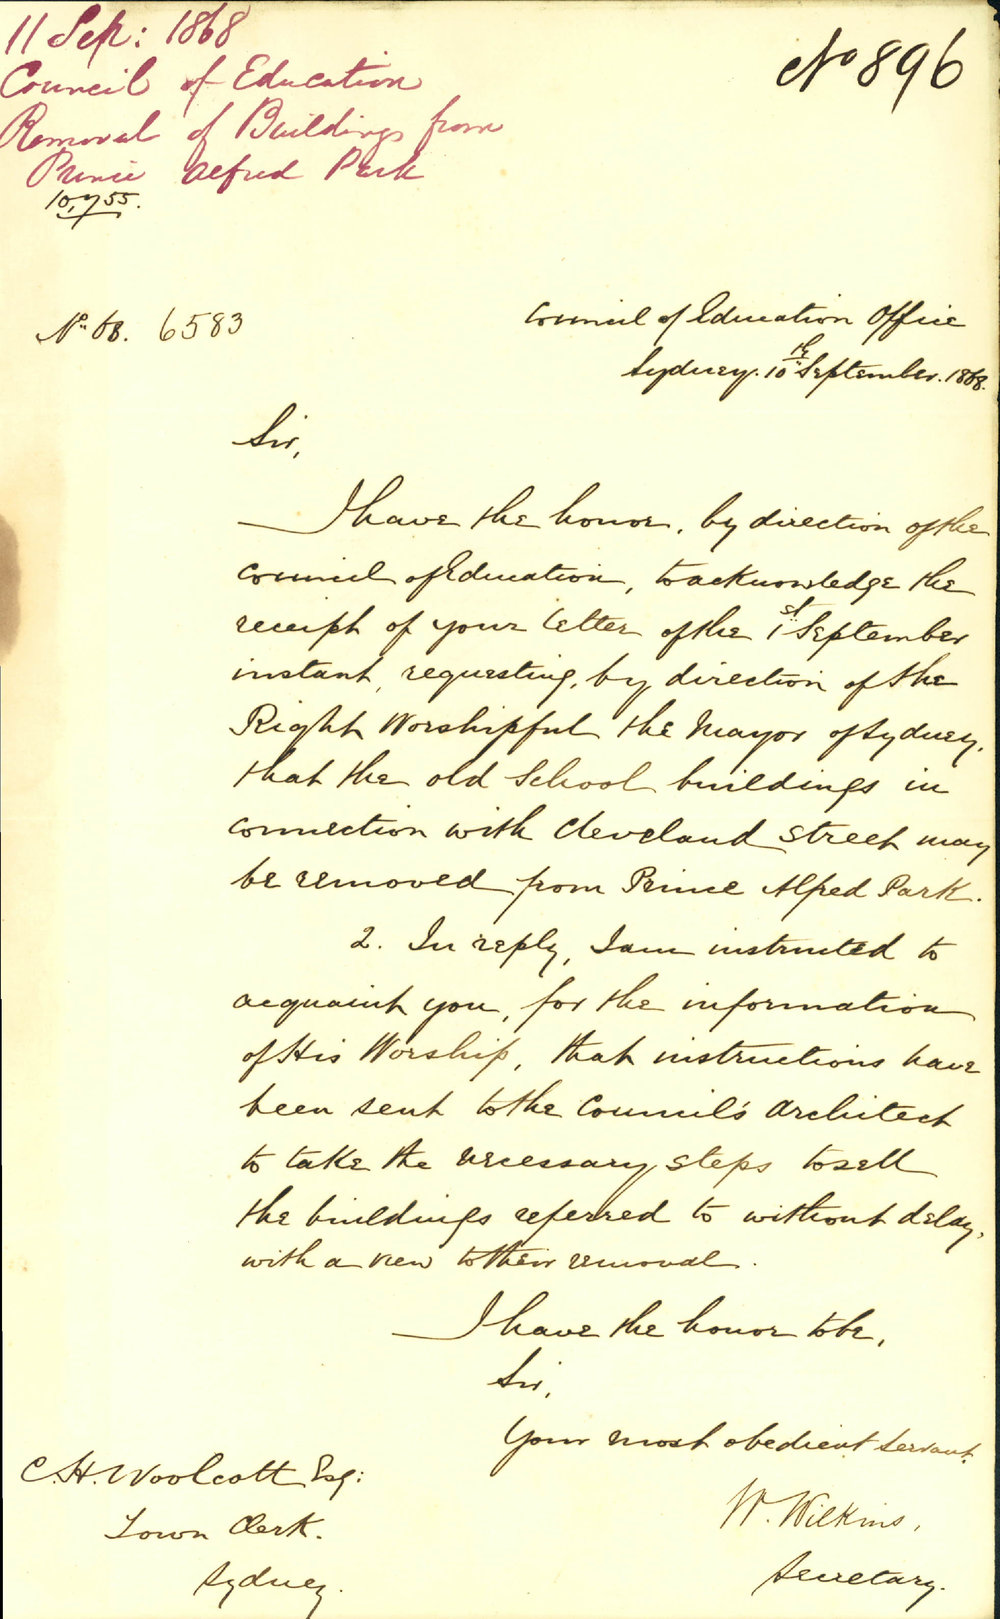 11 Sep: 1868
Council of Education
Removal of Buildings from
Prince Alfred Park
No 896
No. 68. 6583
Council of Education Office
Sydney. 10th September. 1868.
Sir,
I have the honor, by direction of the
Council of Education, to acknowledge the
receipt of your letter of the 1st September
instant, requesting, by direction of the
Right Worshipful the Mayor of Sydney,
that the old School buildings in
connection with Cleveland Street may
be removed from Prince Alfred Park.
2. In reply, I am instructed to
acquaint you, for the information
of His Worship, that instructions have
been sent to the Council's Architect
to take the necessary steps to sell
the buildings referred to without delay,
with a view to their removal.
I have the honor to be,
Sir,
Your most obedient servant,
W. Wilkins,
Secretary.
C. H. Woolcott Esq:
Town Clerk.
Sydney.